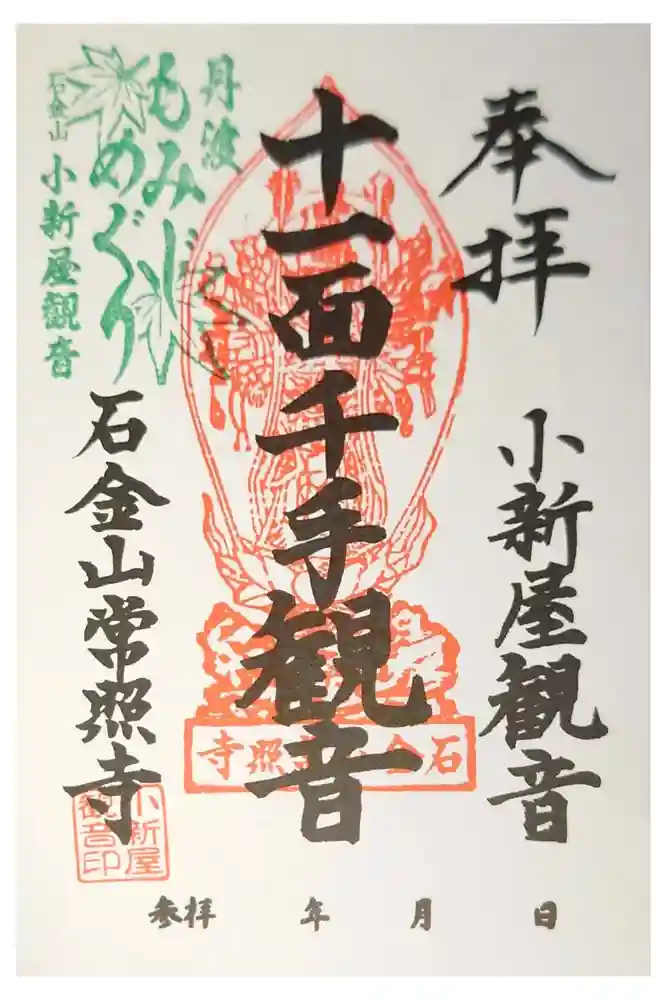 奉拝
小新屋観音
十一面千手観音
石金山常照寺
丹波
もみじめぐり
石金山
小新屋観音
石金山常照寺
小新屋
観音印
参拝　年　月　日